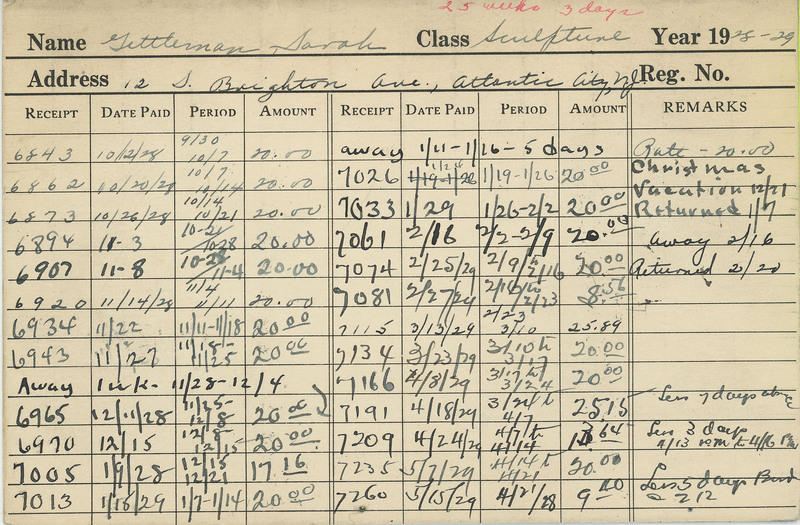 25 weeks 3 days
Name Gittleman, Sarah Class Sculpture Year 1928-29
Address 12 S. Brighton Ave., Atlantic City, N.J. Reg. No.
RECEIPT DATE PAID PERIOD AMOUNT RECEIPT DATE PAID PERIOD AMOUNT REMARKS
6843 10/2/28 9/30 10/7 20.00 away 1/11-1/26-5 days Rate - 20.00
6862 10/20/28 10/7 10/14 20.00 7026 1/24 1/19-1/26 1/19-1/26 20.00 Christmas
6873 10/26/28 10/14 10/21 20.00 7033 1/29 1/26-2/2 20.00 Vacation 12/21 Returned 1/7
6894 11-3 10-21 10-28 20.00 7061 2/16 2/2-2/9 20.00 away 2/16
6907 11-8 10-28 11-4 20.00 7074 2/25/29 2/9 to 2/16 20.00 Returned 2/20
6920 11/14/28 11/4 11/11 20.00 7081 2/27/29 2/16 to 2/23 8.56
6934 11/22 11/11-11/18 20.00 7115 3/13/29 2/23 3/10 25.89
6943 11/27 11/18- 11/25 20.00 7134 3/23/29 3/10 to 3/17 20.00
Away 1 wk- 11/28-12/4 7166 4/8/29 3/17 to 3/24 20.00
6965 12/11/28 11/25- 12/8 20.00 7191 4/18/29 3/24 to 4/7 25.15 Less 7 days
6970 12/15 12/8- 12/15 20.00 7209 4/24/29 4/7 to 4/14 Less 3 days
7005 1/9/28 12/15 12/21 17.16 7235 5/7/29 4/14 to 4/21 20.00
7013 1/18/29 1/7-1/14 20.00 7260 5/15/29 4/21/28 9. Less 5 days